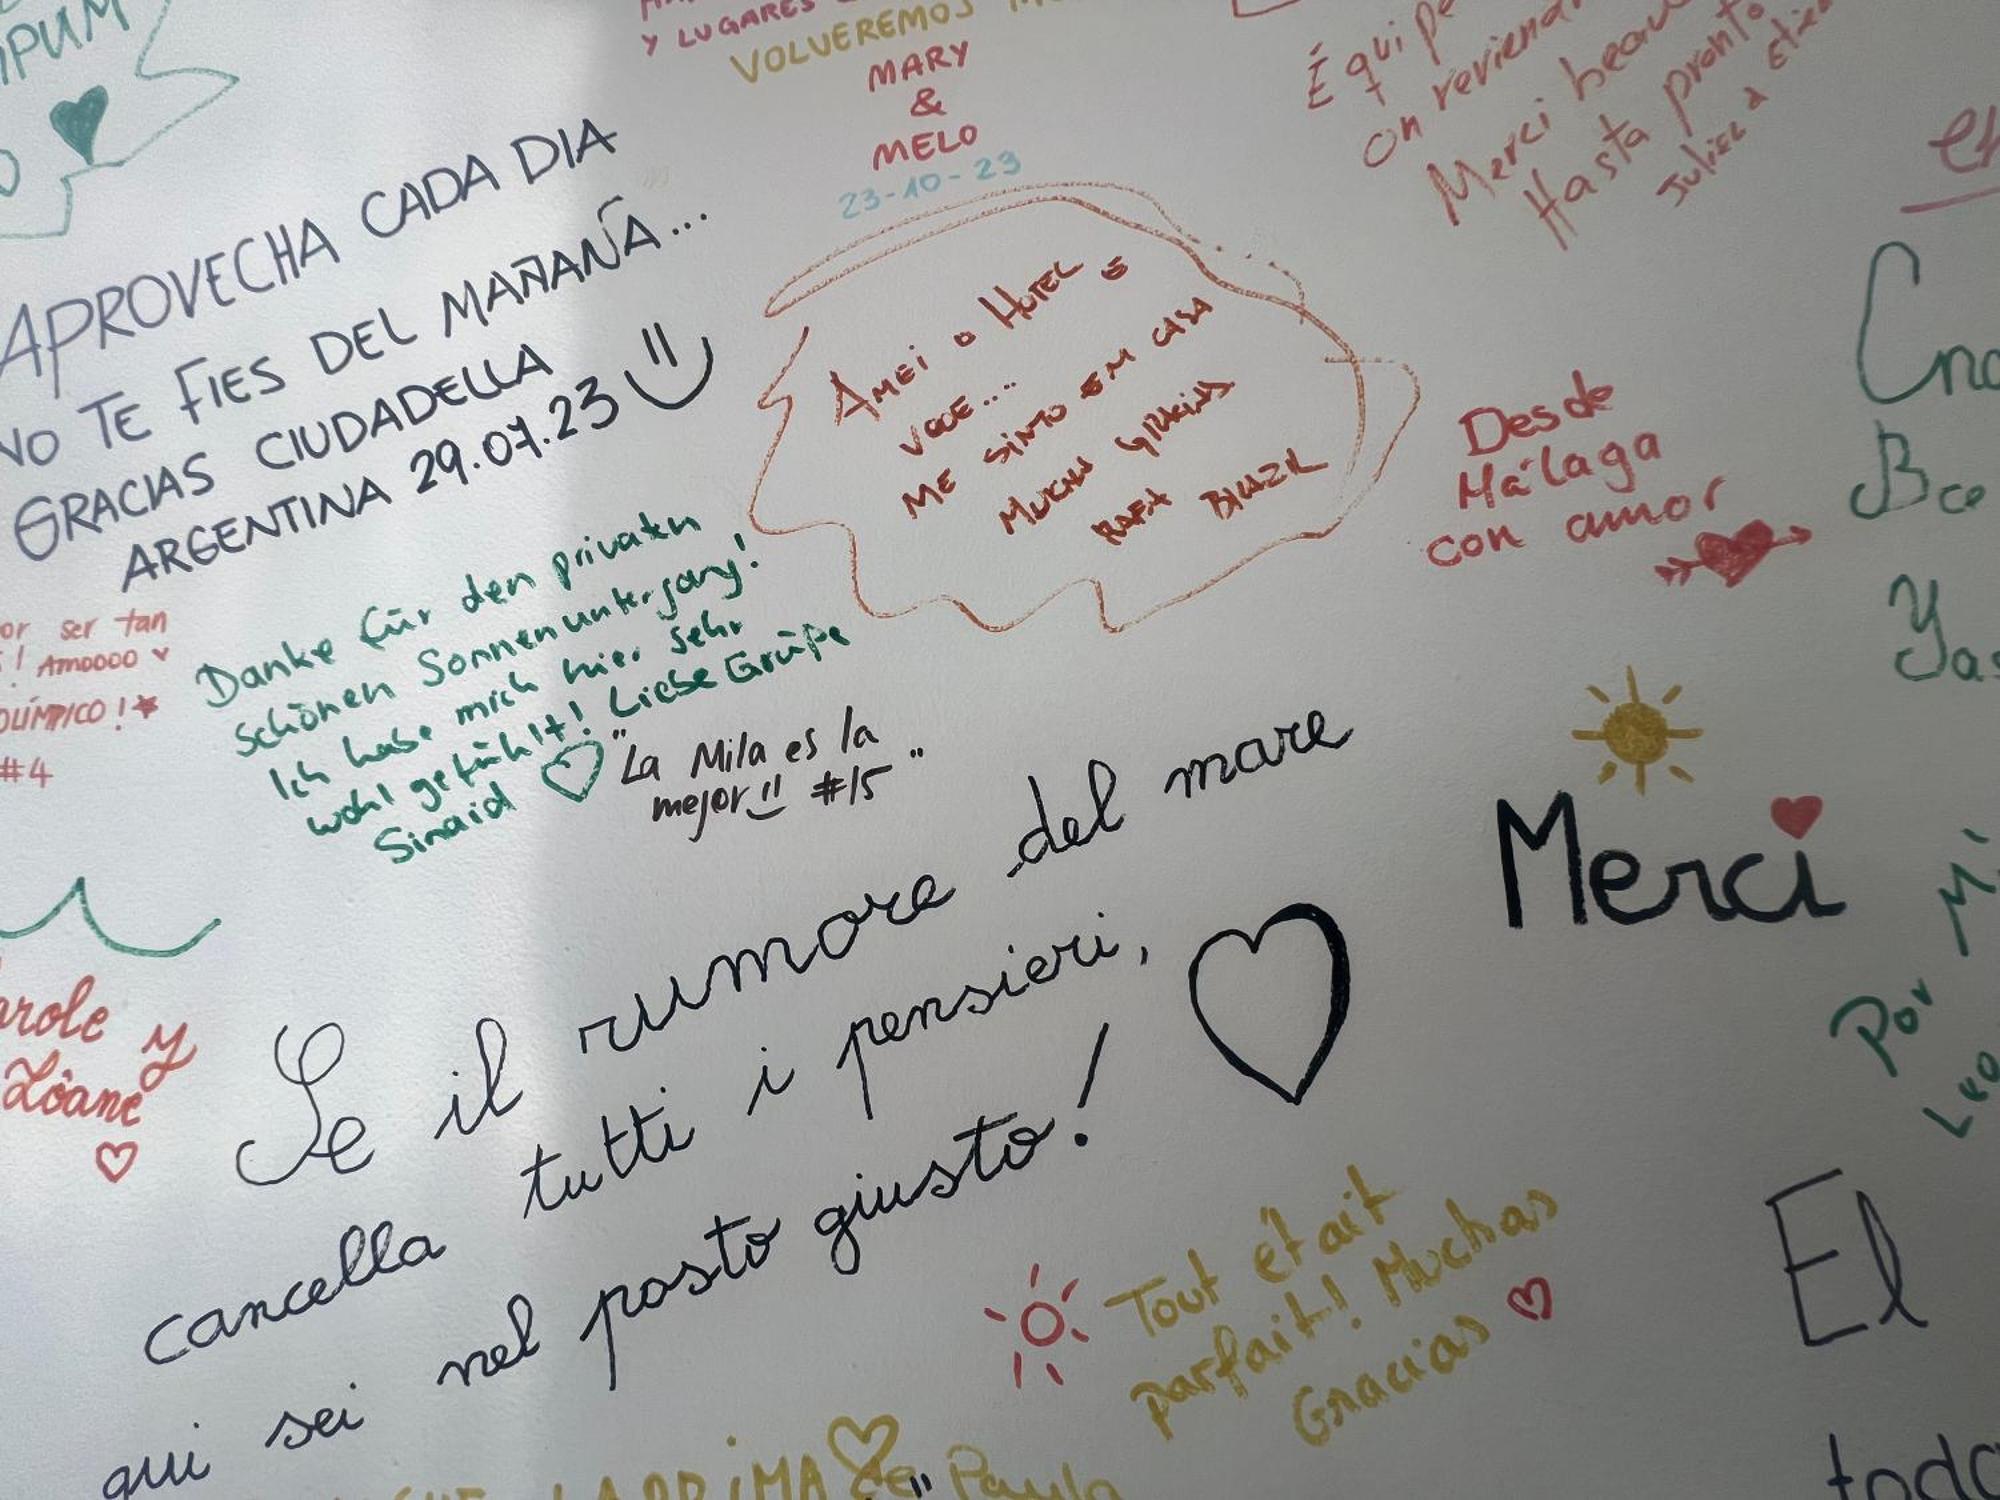 Y LUGARES
VOLVEREMOS
MARY
&
MELO
23-10-23
on reviendra
Merci beau
Hasta pronto
APROVECHA CADA DIA
NO TE FIES DEL MAÑANA...
GRACIAS CIUDADELLA
ARGENTINA 29.07.23
AMEI O HOTEL E
VOCE...
ME SINTO EM CASA
MUCHAS GRACIAS
RAFA BRAZIL
Desde
Málaga
con amor
or ser tan
! AMOOOO
OLÍMPICO!
#4
Danke für den privaten
schönen Sonnenuntergang!
Ich habe mich hier sehr
wohl gefühlt! Liebe Grüße
Sinaid
"La Mila es la
mejor #15"
Merci
Se il rumore del mare
cancella tutti i pensieri,
qui sei nel posto giusto!
arole y
Zôane
Por
Tout était
parfait! Muchas
Gracias
El
Paula